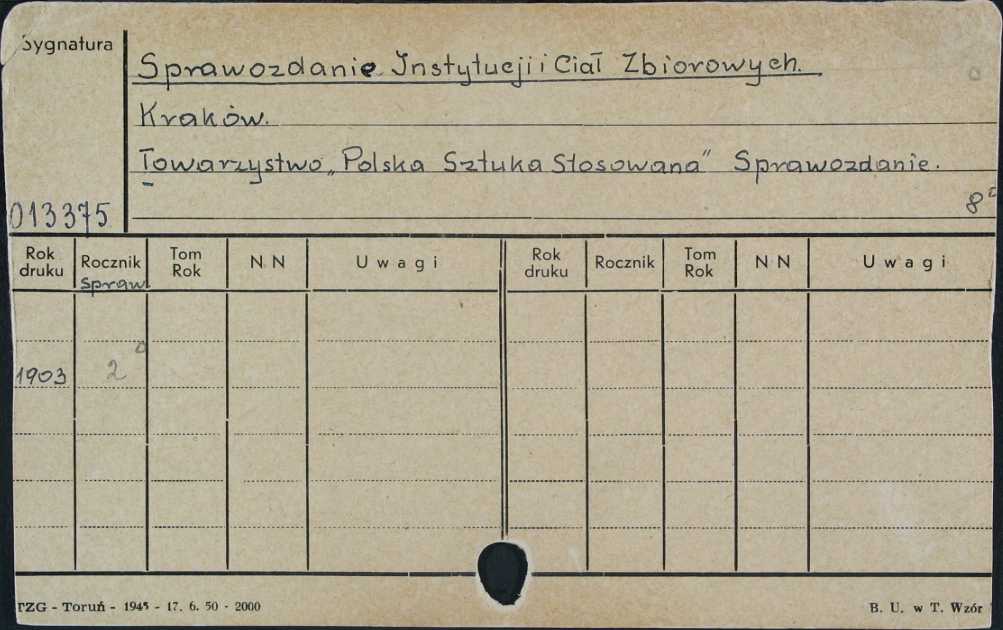 Sygnatura
Sprawozdanie Instytucji i Ciał Zbiorowych.
Kraków.
Towarzystwo „Polska Sztuka Stosowana" Sprawozdanie.
013375
8°
Rok druku Rocznik Tom Rok N N Uwagi Rok druku Rocznik Tom Rok N N Uwagi
Spraw
1903 2
TZG - Toruń - 1945 - 17. 6. 50 - 2000 B. U. w T. Wzór